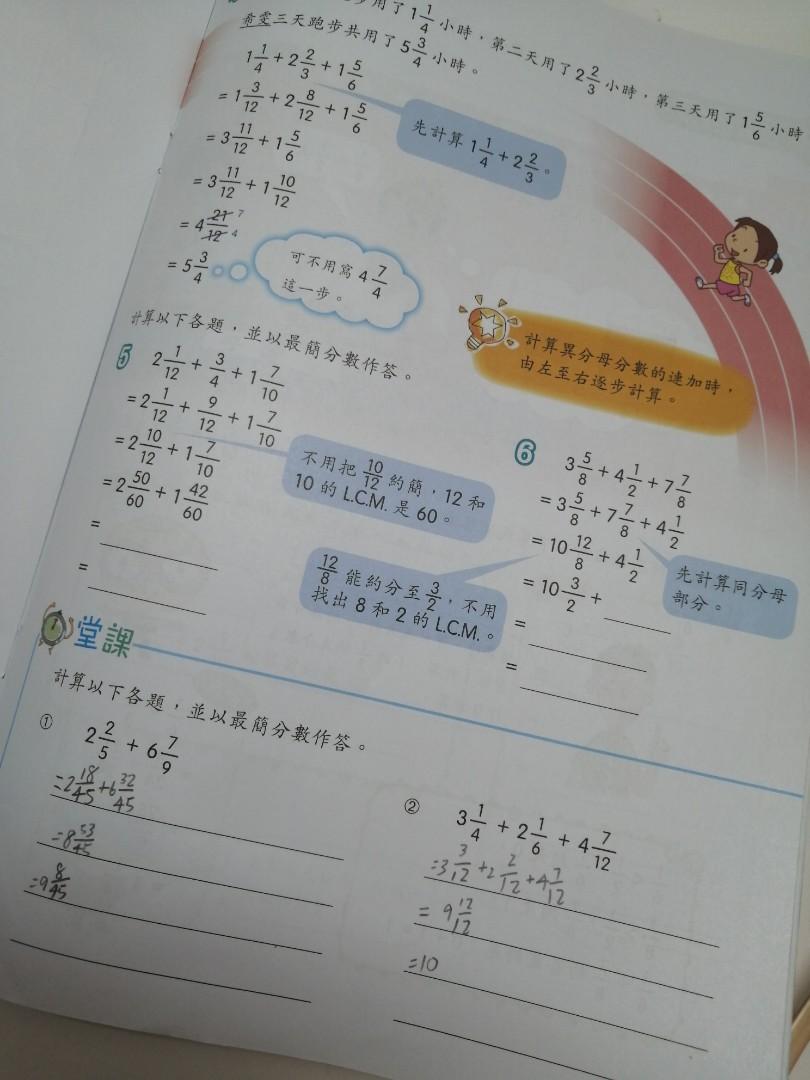 步用了1 1/4小時，第二天用了2 2/3小時，第三天用了1 5/6小時
希雯三天跑步共用了5 3/4小時。
1 1/4 + 2 2/3 + 1 5/6
= 1 3/12 + 2 8/12 + 1 5/6
= 3 11/12 + 1 5/6
= 3 11/12 + 1 10/12
= 4 21/12 7 4
= 5 3/4
先計算1 1/4 + 2 2/3。
可不用寫4 7/4
這一步。
計算異分母分數的連加時，
由左至右逐步計算。
計算以下各題，並以最簡分數作答。
5 2 1/12 + 3/4 + 1 7/10
= 2 1/12 + 9/12 + 1 7/10
= 2 10/12 + 1 7/10
= 2 50/60 + 1 42/60
=
=
不用把10/12約簡，12和
10的L.C.M.是60。
6 3 5/8 + 4 1/2 + 7 7/8
= 3 5/8 + 7 7/8 + 4 1/2
= 10 12/8 + 4 1/2
= 10 3/2 +
=
=
先計算同分母
部分。
12/8能約分至3/2，不用
找出8和2的L.C.M.。
堂課
計算以下各題，並以最簡分數作答。
① 2 2/5 + 6 7/9
=2 18/45+6 32/45
=8 53/45
=9 8/45
② 3 1/4 + 2 1/6 + 4 7/12
=3 3/12+2 2/12+4 7/12
= 9 12/12
=10